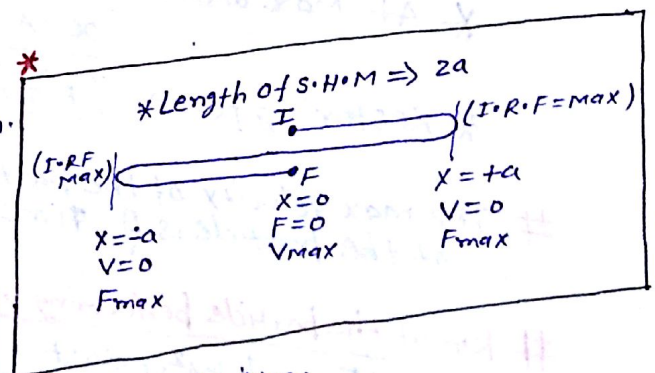 *
*Length of S.H.M => 2a
I
(I.R.F = Max)
(I.RF Max)
F
X=0
F=0
Vmax
X = +a
V = 0
Fmax
X=-a
V=0
Fmax